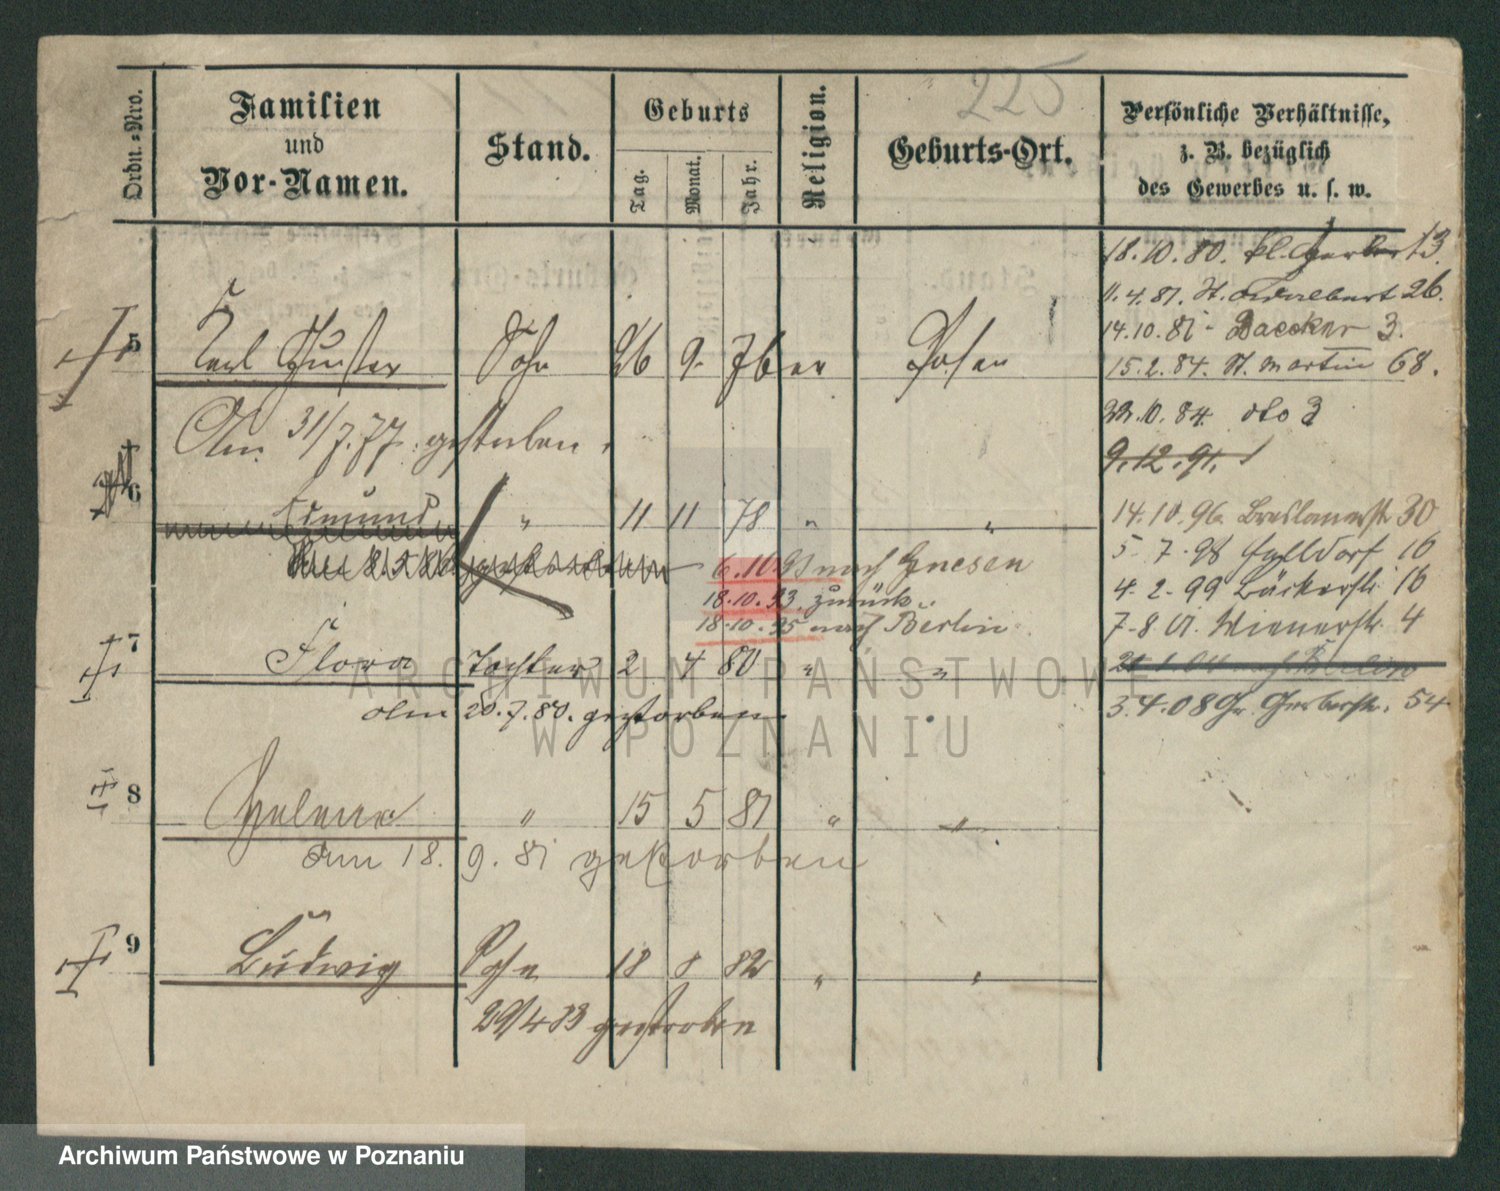 225
Ordn.-Nro.
Familien
und
Vor-Namen.
Stand.
Geburts
Tag.
Monat.
Jahr.
Religion.
Geburts-Ort.
Persönliche Verhältnisse,
z. B. bezüglich
des Gewerbes u. s. w.
18.10.80.
11.4.81. St. Adalbert 26.
14.10.81 - Baecker 3.
5 Karl Gustav Sohn 26 9. Posen
15.2.84. St. Martin 68.
22.10.84. dto 3
Am 31/7.77. gestorben.
9.12.91.
6 Edmund " 11 11 78 " "
14.10.96. Breslauerstr 30
6.10.91 nach Gnesen
5.7.98 16
18.10.93. zurück.
4.2.99 Bäckerstr. 16
18.10.95 nach Berlin.
7.8.01. Wienerstr. 4
7 Flora Tochter 2 4 80 " "
am 20.7.80. gestorben.
3.4.08 Gr. Gerberstr. 54
8 Helene " 15 5 81 " "
Am 18. 9. 81 gestorben
9 Ludwig Sohn 18 8 82 " "
29/4 83 gestorben
ARCHIWUM PAŃSTWOWE
W POZNANIU
Archiwum Państwowe w Poznaniu